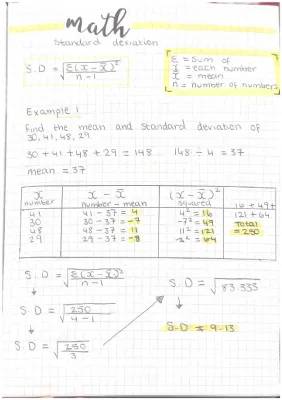 math
standard deviation
S.D = √Σ(x-x̄)²
n-1
Σ = sum of
x = each number
x̄ = mean
n = number of numbers
Example 1
Find the mean and standard deviation of
30, 41, 48, 29
30 + 41 + 48 + 29 = 148 148 ÷ 4 = 37
mean = 37
x x - x̄ (x - x̄)²
number number - mean squared 16 + 49 +
41 41 - 37 = 4 4² = 16 121 + 64
30 30 - 37 = -7 -7² = 49 Total
48 48 - 37 = 11 11² = 121 = 250
29 29 - 37 = -8 -8² = 64
S.D = √Σ(x-x̄)²
n-1
S.D = √250
4-1
S.D = √250
3
S.D = √83.333
S.D = 9.13